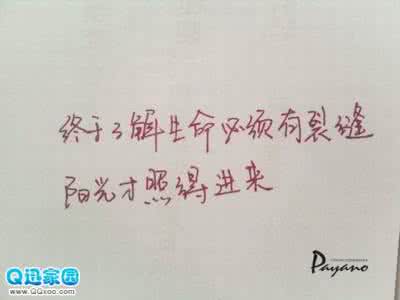 终于了解生命必须有裂缝
阳光才照得进来
Payano
Q迅家园
www.QQxoo.com